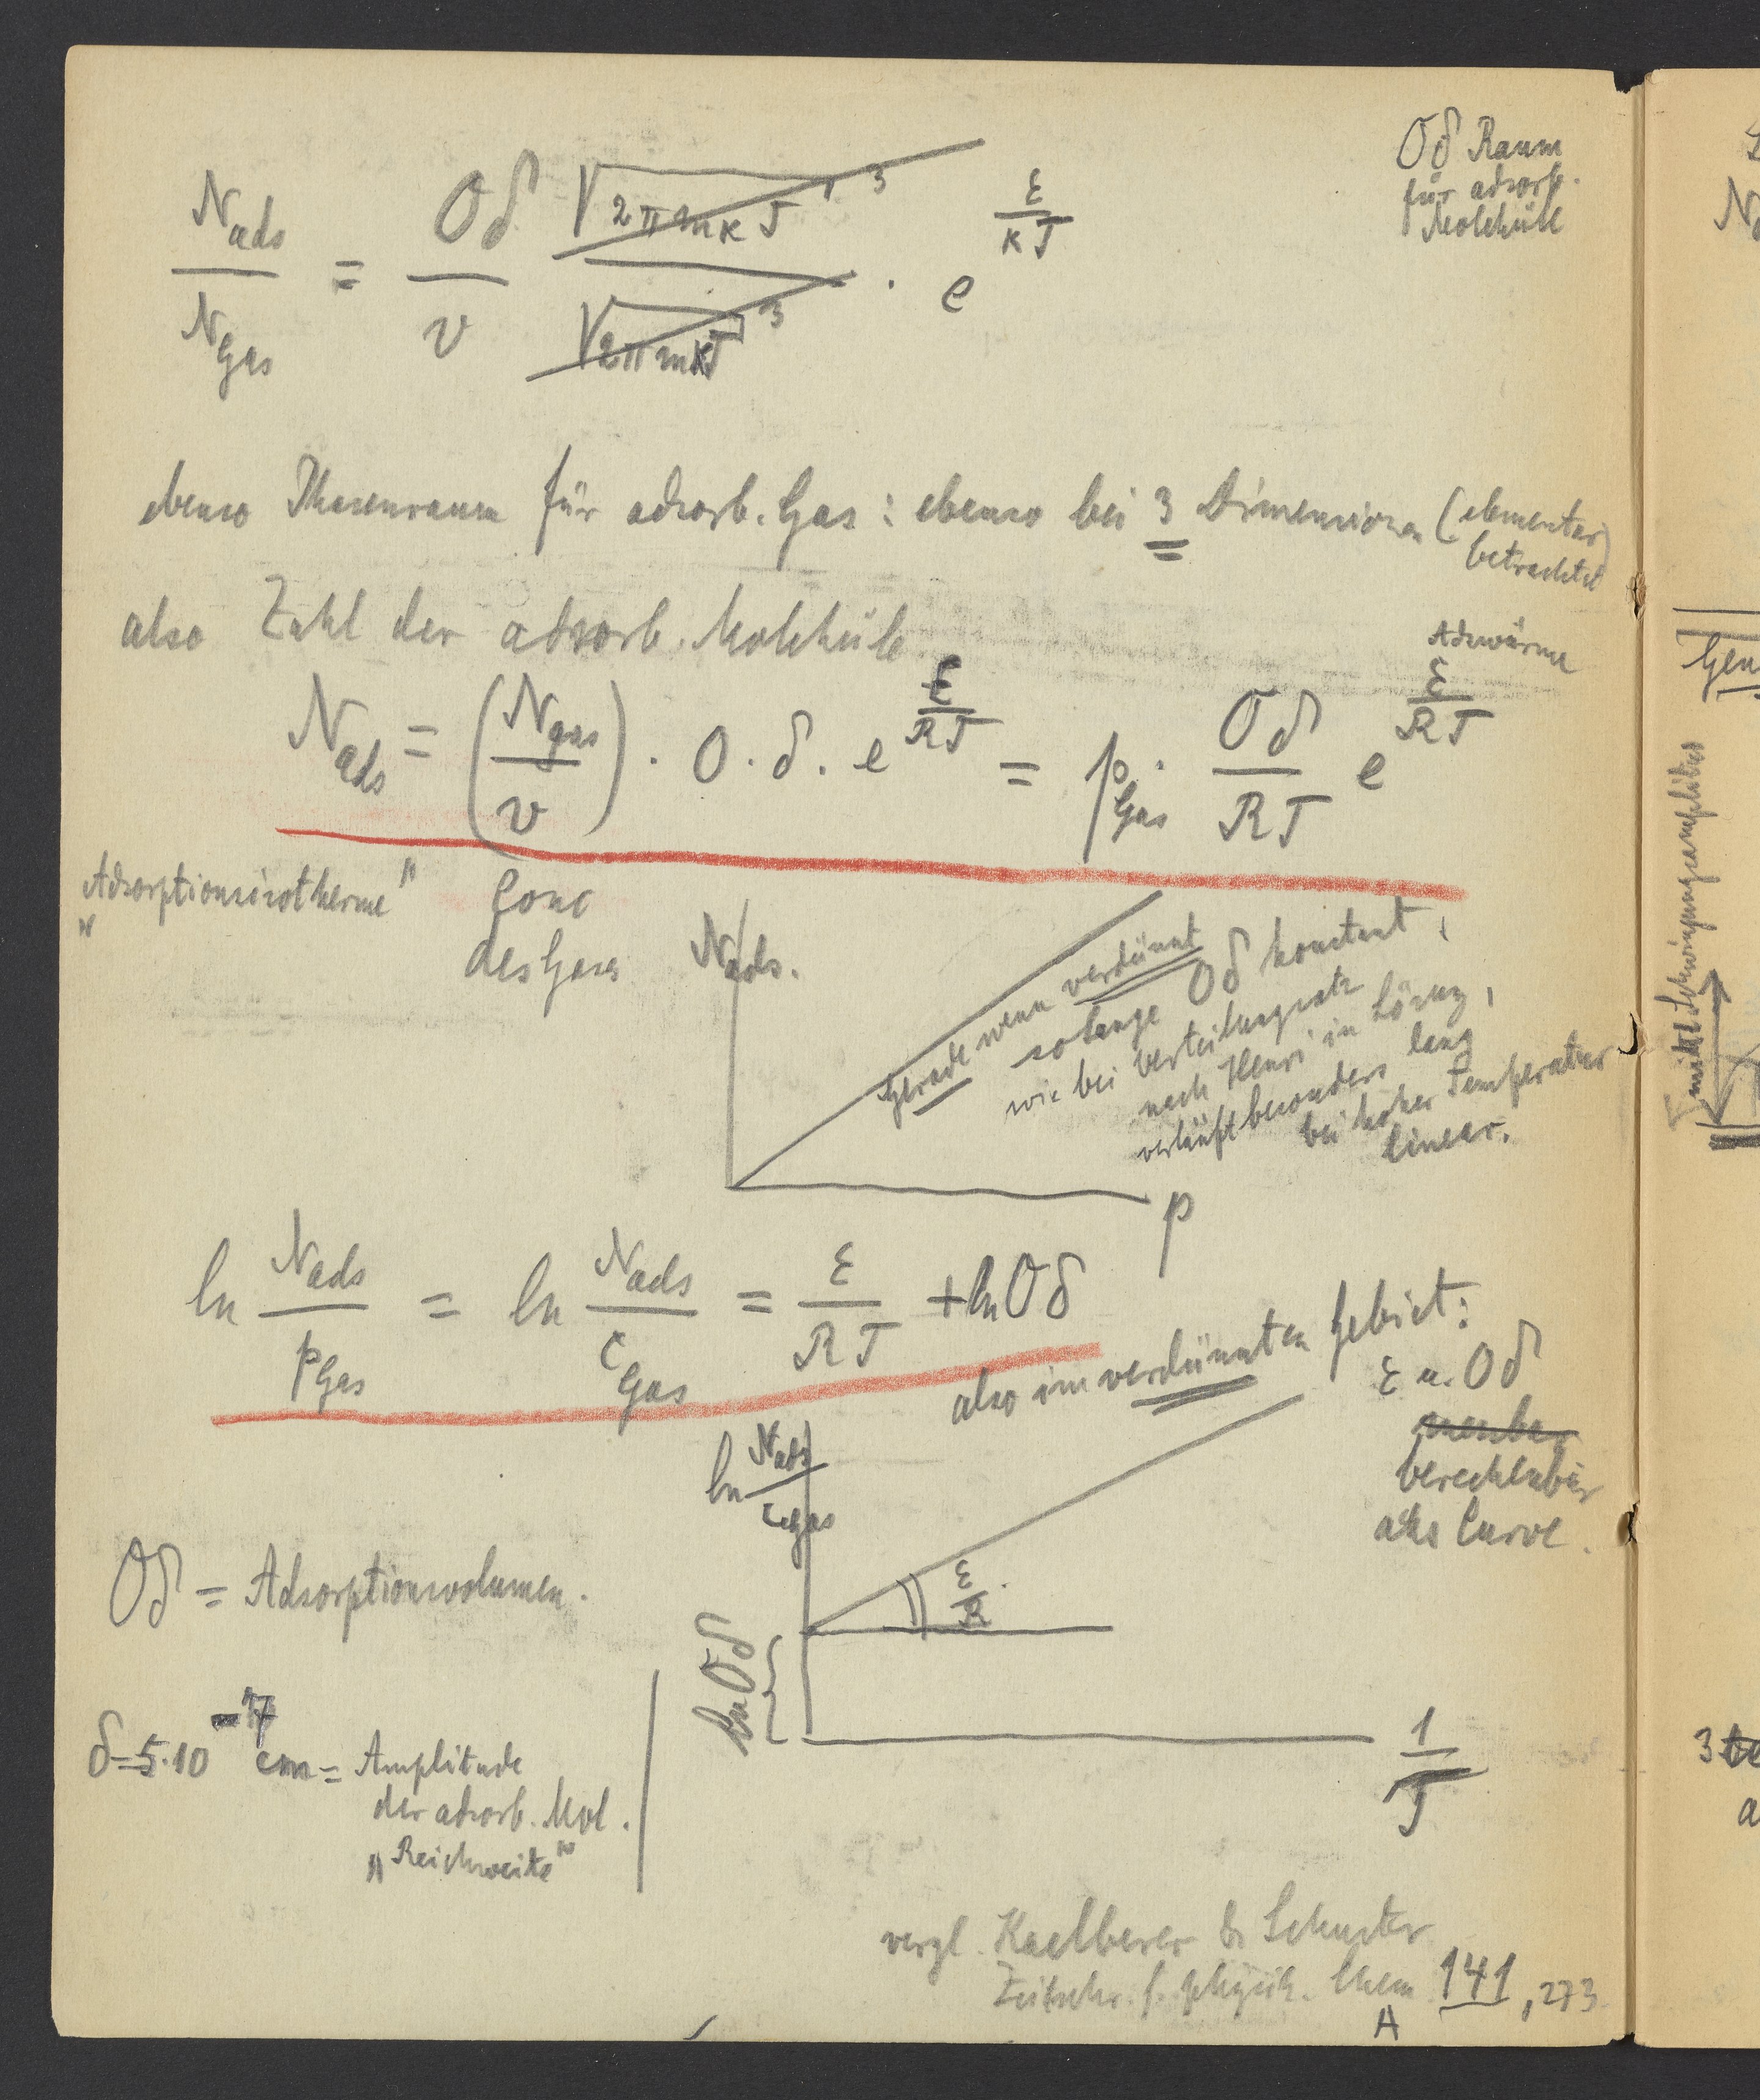 N_ads / N_Gas = Oδ / v · √2πmkT³ / √2πmkT³ · e^(ε/kT)
Oδ Raum
für adsorb.
Moleküle
ebenso Phasenraum für adsorb. Gas: ebenso bei 3 Dimensionen (elementar
betrachtet)
also Zahl der adsorb. Moleküle
Adswärme
N_ads = (N_gas / v) · O · δ · e^(ε/RT) = p_Gas · Oδ / RT e^(ε/RT)
„Adsorptionsisotherme"
Conc
des Gases
N_ads.
Gerade wenn verdünnt
solange Oδ konstant,
wie bei Verteilungssatz
nach Henri in Lösung,
verläuft besonders lang
bei hoher Temperatur
linear.
p
ln N_ads / p_Gas = ln N_ads / c_Gas = ε / RT + ln Oδ
also im verdünnten Gebiet:
ε u. Oδ
messbar
berechenbar
aus Curve.
ln N_ads / c_gas
ε / R
ln Oδ
1 / T
Oδ = Adsorptionsvolumen.
δ = 5·10 cm = Amplitude
der adsorb. Mol.
„Reichweite"
vergl. Kaelberer & Schuster
Zeitschr. f. physik. Chem 141, 273
A
mittl Schwingungsamplitude